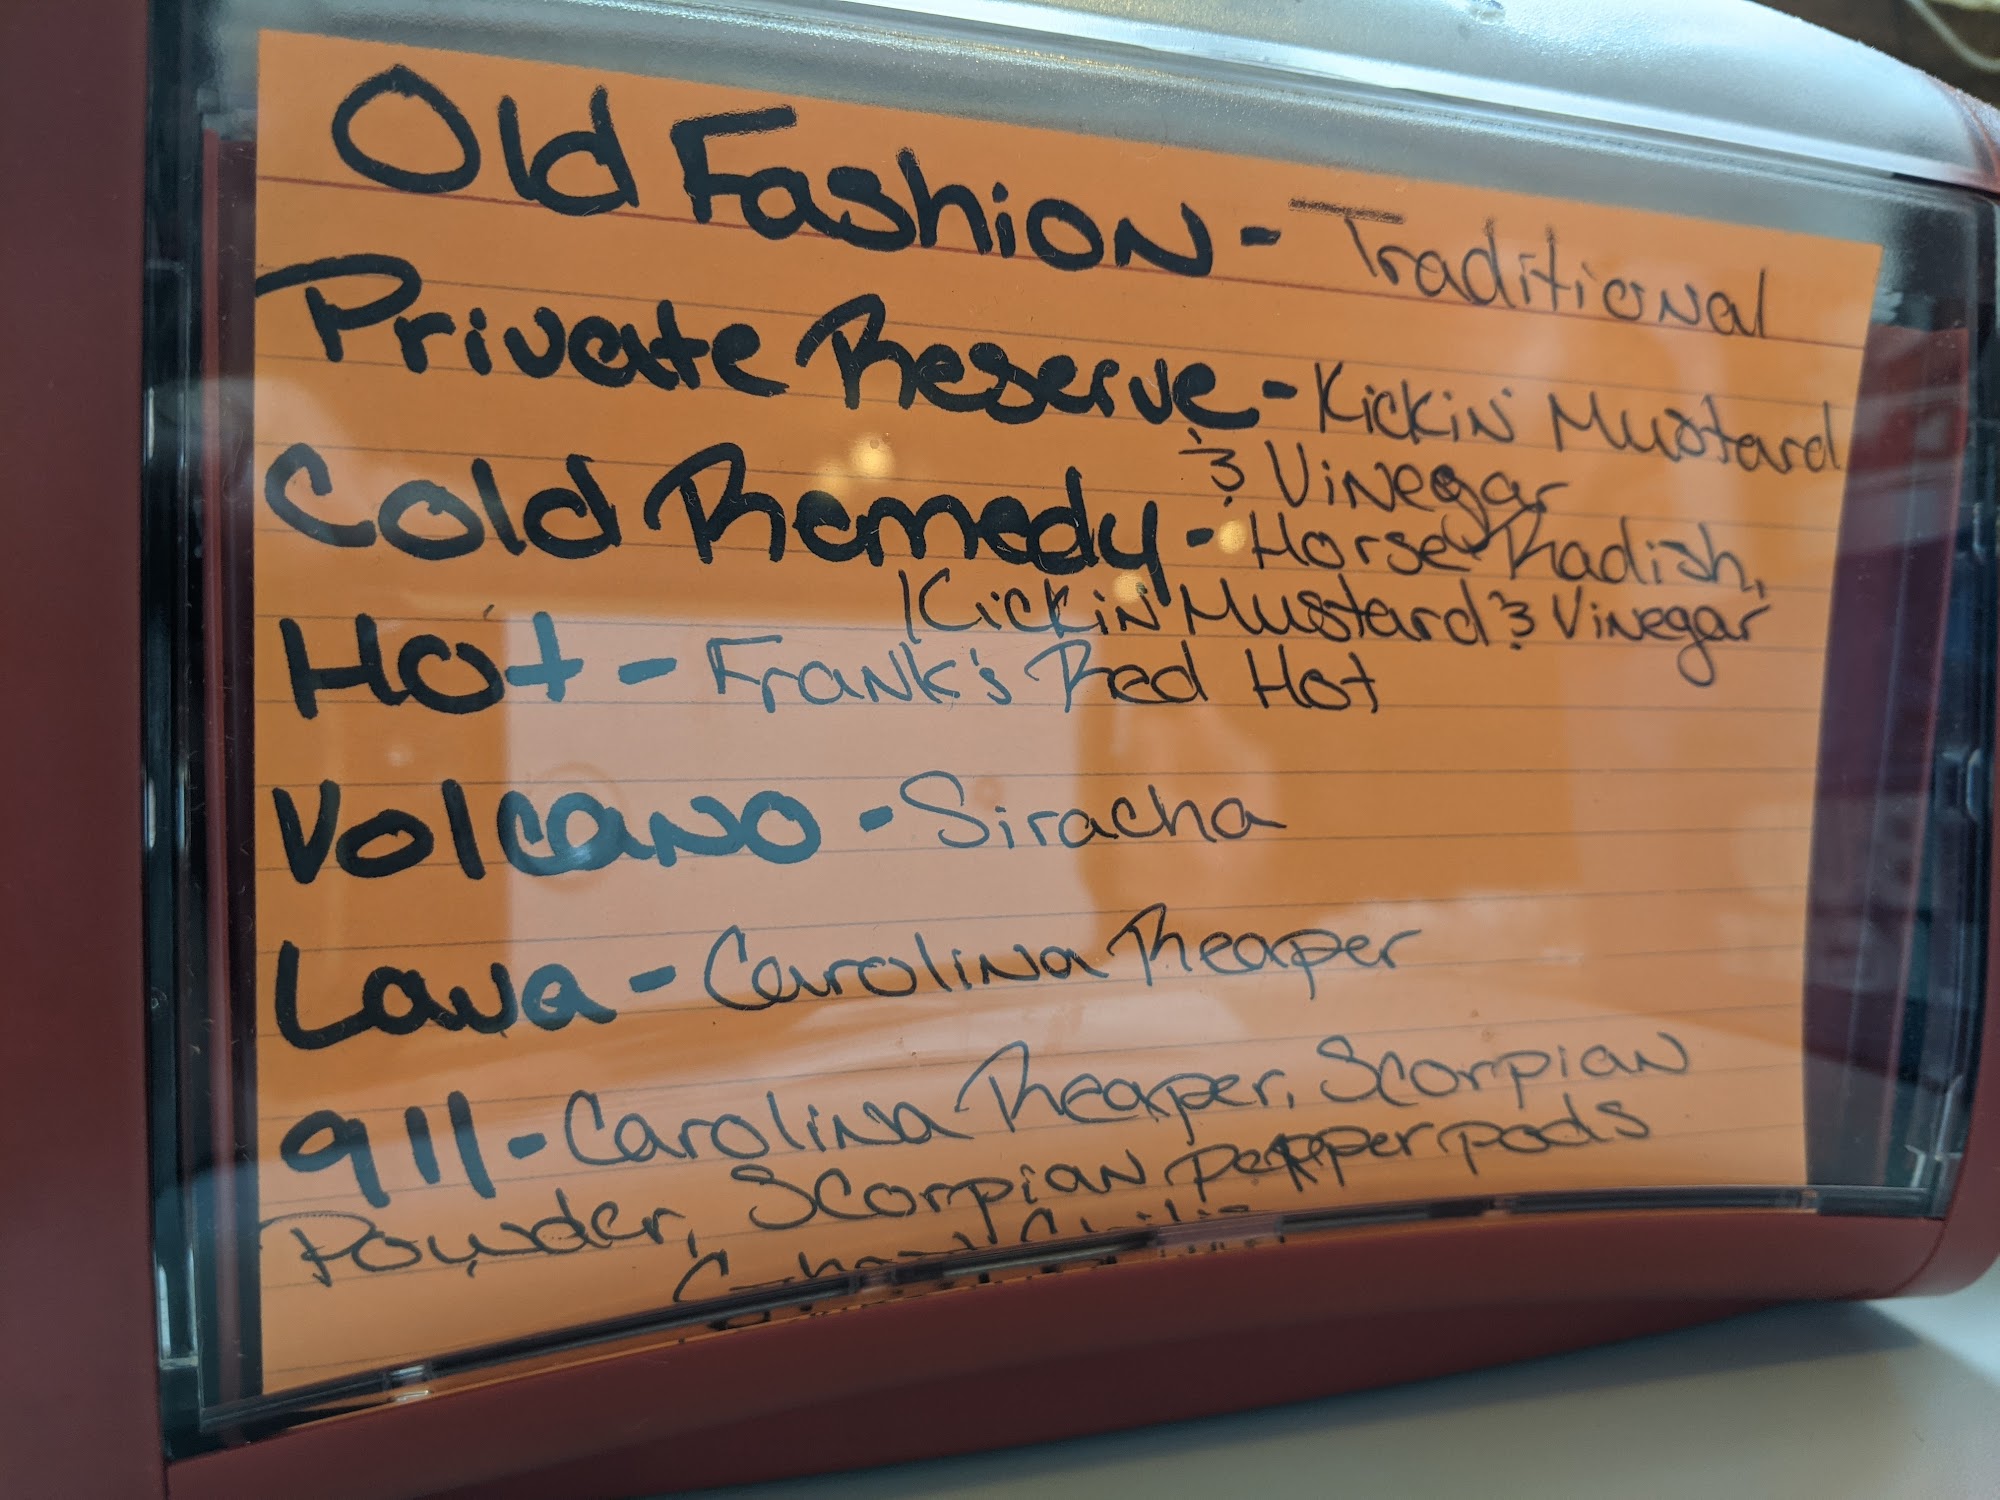 Old Fashion - Traditional
Private Reserve - Kickin' Mustard
& Vinegar
Cold Remedy - Horse Radish,
Kickin' Mustard & Vinegar
Hot - Frank's Red Hot
Volcano - Siracha
Lava - Carolina Reaper
911 - Carolina Reaper, Scorpian
Powder, Scorpian Pepper pods